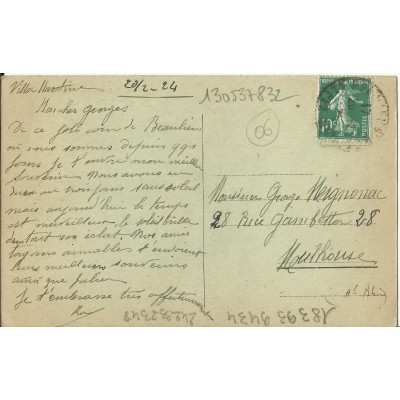 Villa Martine 20/2-24
130537832
06
Mon cher Georges
De ce joli coin de Beaulieu
où nous sommes depuis qqs
jours je t'envoie mon meilleur
souvenir. Nous avons eu
deux ou trois jours sans soleil
mais aujourd'hui le temps
est merveilleux, le soleil brille
dans tout son éclat. Nos amis
toujours aimables t'envoient
leurs meilleurs souvenirs
ainsi que Julien
Je t'embrasse très affectueusement
10c
POSTES
Monsieur Georges
28 Rue Gambetta 28
Mulhouse
Ht Rhin
18393 9434